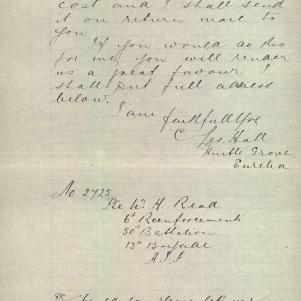 cost and I shall send
it on return mail to
you
If you would do this
for me, you will render
us a great favour I
shall put full address
below.
I am faithfully
C Les. Hall
Myrtle Grove
Eurelia
No 2725
Pte W. H. Read
6th Reinforcements
50th Battalion
13th Brigade
A.I.F